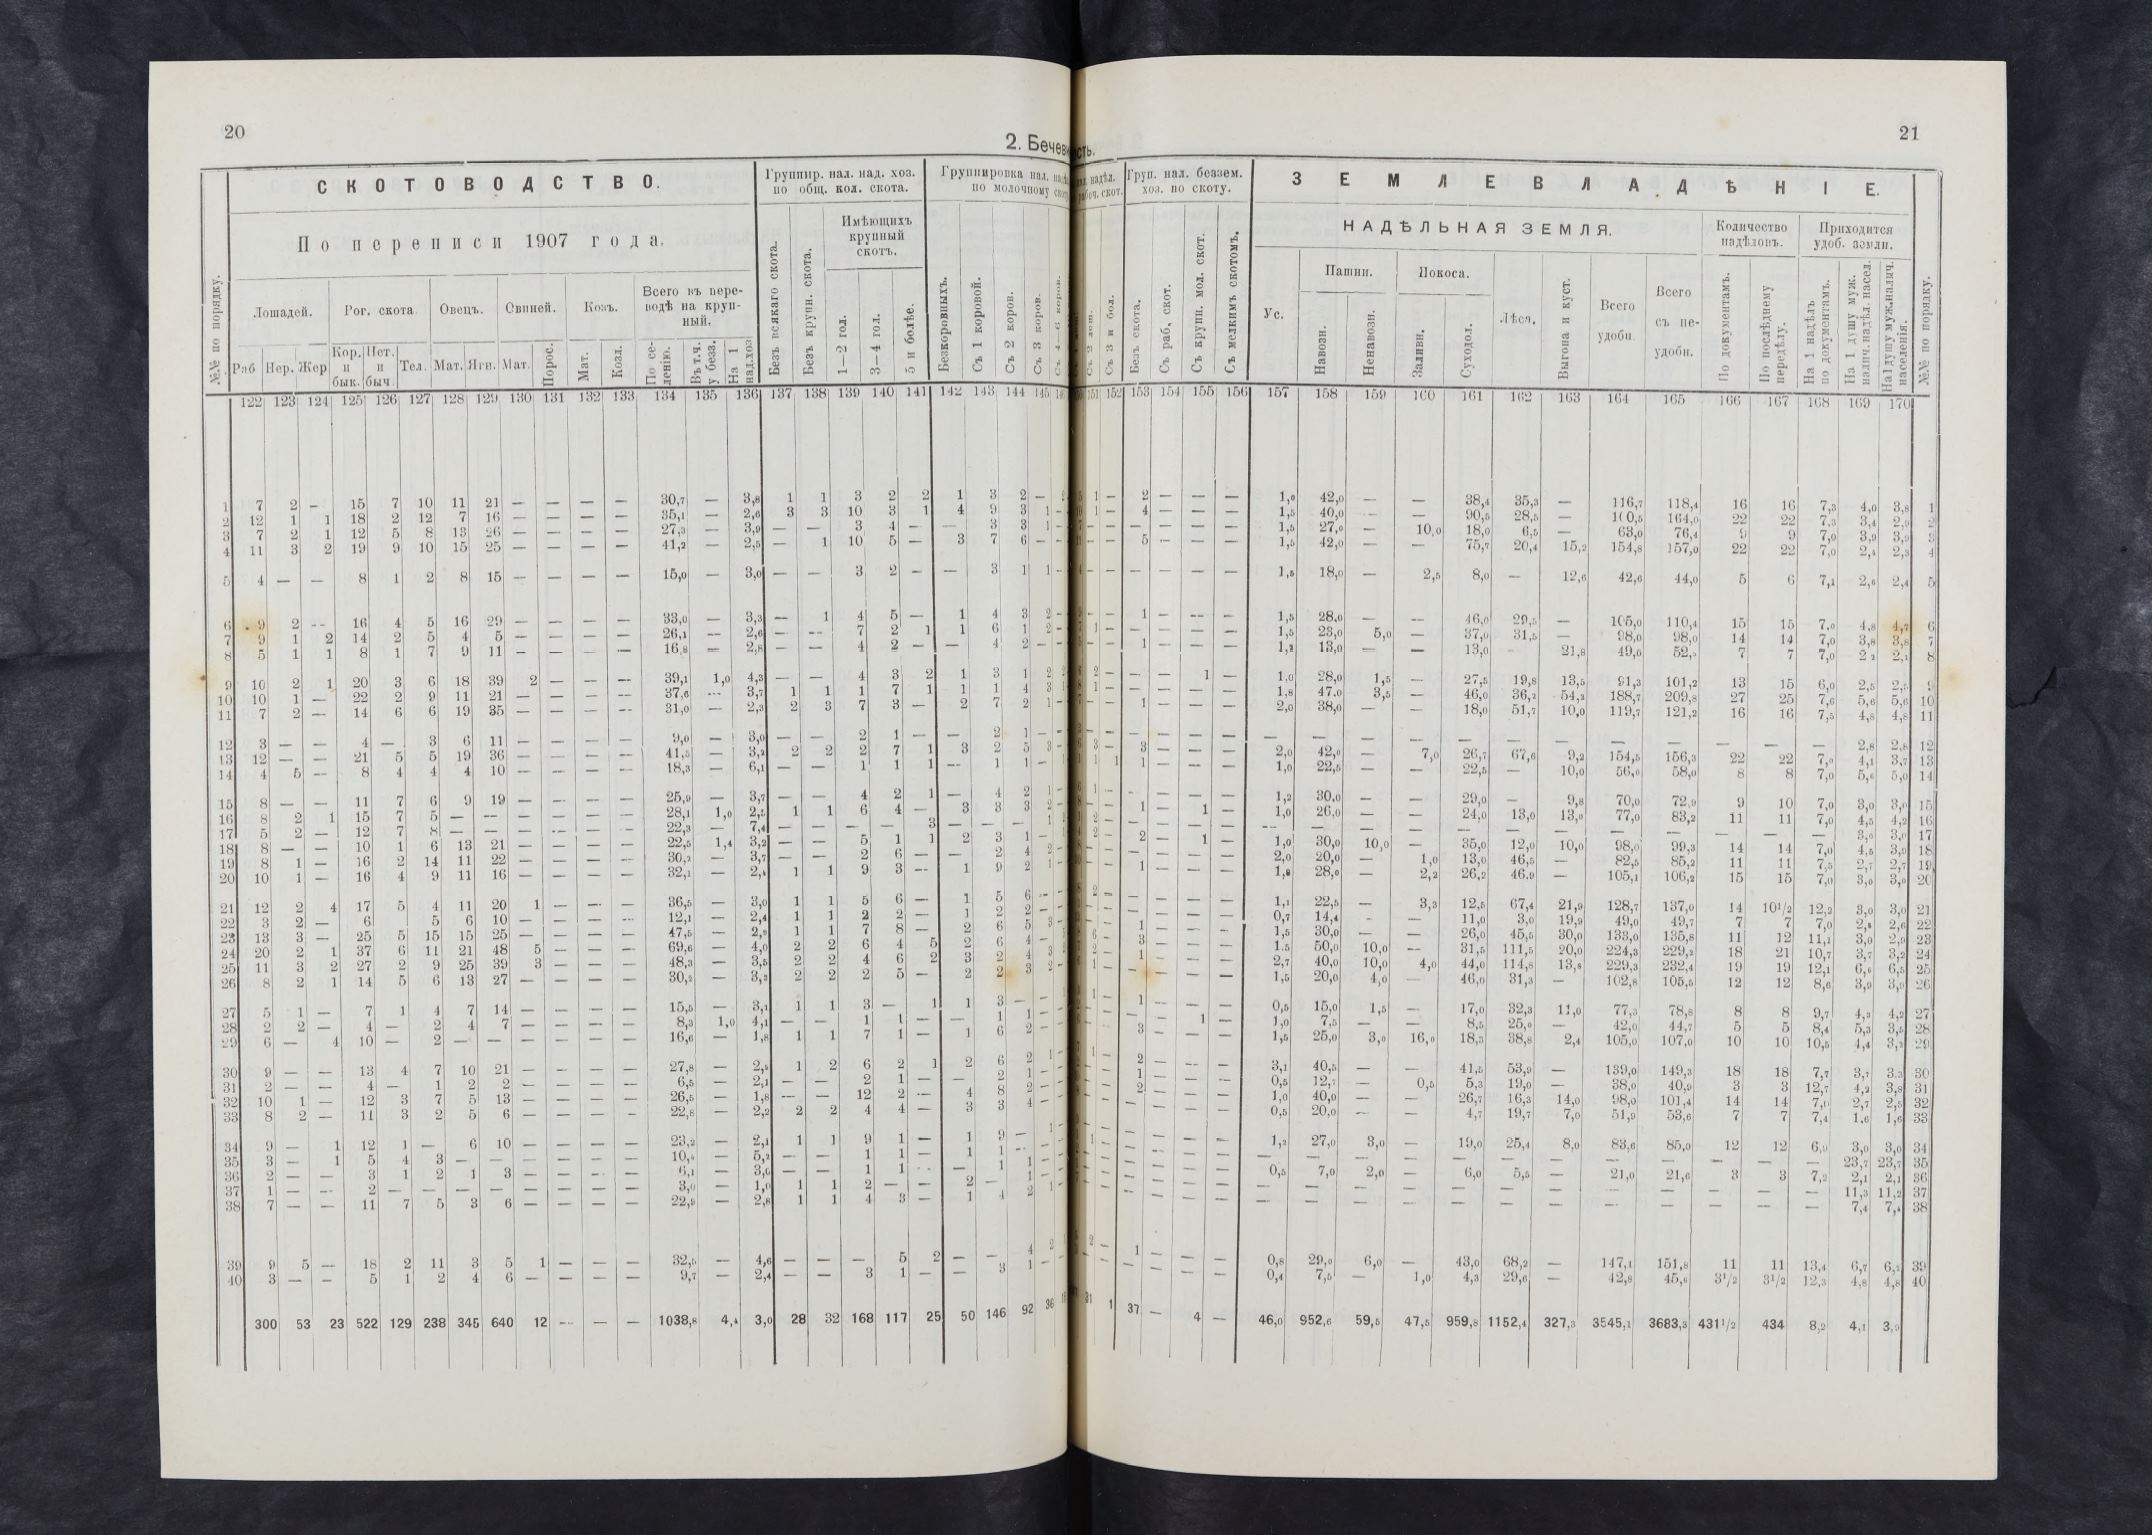 20
2. Бечев
СКОТОВОДСТВО.
Группир. нал. над. хоз. по общ. кол. скота.
Группировка нал. по молочному
По переписи 1907 года.
Имѣющихъ крупный скотъ.
№№ по порядку.
Лошадей.
Рог. скота
Овецъ.
Свиней.
Козъ.
Всего въ переводѣ на крупный.
Раб Нер. Жер Кор. и бык. Нет. и быч. Тел. Мат. Ягн. Мат. Порос. Мат. Козл. По селенію. Въ т.ч. у безз. На 1 над.хоз
Безъ всякаго скота. Безъ крупн. скота. 1—2 гол. 3—4 гол. 5 и болѣе. Безкоровныхъ. Съ 1 коровой. Съ 2 коров. Съ 3 коров.
122 123 124 125 126 127 128 129 130 131 132 133 134 135 136 137 138 139 140 141 142 143 144 145
1 7 2 - 15 7 10 11 21 — — — — 30,7 — 3,8 1 1 3 2 2 1 3 2 —
2 12 1 1 18 2 12 7 16 — — — — 35,1 — 2,6 3 3 10 3 1 4 9 3 1
3 7 2 1 12 5 8 13 26 — — — — 27,3 — 3,9 — — 3 4 — — 3 3 1
4 11 3 2 19 9 10 15 25 — — — — 41,2 — 2,5 — 1 10 5 — 3 7 6 —
5 4 — — 8 1 2 8 15 — — — — 15,0 — 3,0 — — 3 2 — — 3 1 1
6 9 2 — 16 4 5 16 29 — — — — 33,0 — 3,3 — 1 4 5 — 1 4 3 2
7 9 1 2 14 2 5 4 5 — — — — 26,1 — 2,6 — — 7 2 1 1 6 1 2
8 5 1 1 8 1 7 9 11 — — — — 16,8 — 2,8 — — 4 2 — — 4 2 —
9 10 2 1 20 3 6 18 39 2 — — — 39,1 1,0 4,3 — — 4 3 2 1 3 1 2
10 10 1 — 22 2 9 11 21 — — — — 37,6 — 3,7 1 1 1 7 1 1 1 4 3
11 7 2 — 14 6 6 19 35 — — — — 31,0 — 2,3 2 3 7 3 — 2 7 2 1
12 3 — — 4 — 3 6 11 — — — — 9,0 — 3,0 — — 2 1 — — 2 1 —
13 12 — — 21 5 5 19 36 — — — — 41,5 — 3,2 2 2 2 7 1 3 2 5 3
14 4 5 — 8 4 4 4 10 — — — — 18,3 — 6,1 — — 1 1 1 — 1 1 —
15 8 — — 11 7 6 9 19 — — — — 25,9 — 3,7 — — 4 2 1 — 4 2 1
16 8 2 1 15 7 5 — — — — — — 28,1 1,0 1 1 6 4 — 3 3 3
17 5 2 — 12 7 8 — — — — — — 22,3 — 7,4 — — — — 3 — — — 1
18 8 — — 10 1 6 13 21 — — — — 22,5 1,4 3,2 — — 5 1 1 2 3 1
19 8 1 — 16 2 14 11 22 — — — — 30,2 — 3,7 — — 2 6 — — 2 4 2
20 10 1 — 16 4 9 11 16 — — — — 32,1 — 2,4 1 1 9 3 — 1 9 2 1
21 12 2 4 17 5 4 11 20 1 — — — 36,5 — 3,0 1 1 5 6 — 1 5 6 —
22 3 2 — 6 5 6 10 — — — — 12,1 — 2,4 1 1 2 2 — 1 2 2 —
23 13 3 — 25 5 15 15 25 — — — — 47,5 — 2,9 1 1 7 8 — 2 6 5 3
24 20 2 1 37 6 11 21 48 5 — — — 69,6 — 4,0 2 2 6 4 5 2 6 4 —
25 11 3 2 27 2 9 25 39 3 — — — 48,3 — 3,5 2 2 4 6 2 3 2 4 3
26 8 2 1 14 5 6 13 27 — — — — 30,2 — 3,3 2 2 2 5 — 2 2 3 2
27 5 1 — 7 1 4 7 14 — — — — 15,5 — 3,1 1 1 3 — 1 1 3 — —
28 2 2 — 4 — 2 4 7 — — — — 8,3 1,0 4,1 — — 1 1 — — 1 1 —
29 6 — 4 10 — 2 — — — — — — 16,6 — 1,8 1 1 7 1 — 1 6 2 —
30 9 — — 13 4 7 10 21 — — — — 27,8 — 2,5 1 2 6 2 1 2 6 2 1
31 2 — — 4 — 1 2 2 — — — — 6,5 — 2,1 — — 2 1 — — 2 1 —
32 10 1 — 12 3 7 5 13 — — — — 26,5 — 1,8 — — 12 2 — 4 8 2 —
33 8 2 — 11 3 2 5 6 — — — — 22,8 — 2,2 2 2 4 4 — 3 3 4 —
34 9 — 1 12 1 — 6 10 — — — — 23,2 — 2,1 1 1 9 1 — 1 9 — 1
35 3 — 1 5 4 3 — — — — — — — 5,2 — — 1 1 — 1 1 —
36 2 — — 3 1 2 1 3 — — — — 6,1 — 3,0 — — 1 1 — — 1 1 —
37 1 — — 2 — — — — — — — — 3,0 — 1,0 1 1 2 — — 2 — 1 —
38 7 — — 11 7 5 3 6 — — — — 22,9 — 2,8 1 1 4 3 — 1 4 2 1
39 9 5 — 18 2 11 3 5 1 — — — 32,5 — 4,6 — — — 5 2 — — 4 2
40 3 — — 5 1 2 4 6 — — — — 9,7 — 2,4 — — 3 1 — — 3 1 —
300 53 23 522 129 238 345 640 12 — — — 1038,8 4,4 3,0 28 32 168 117 25 50 146 92 36
сть.
21
надѣл.
Груп. нал. беззем. хоз. по скоту.
ЗЕМЛЕВЛАДѢНІЕ.
НАДѢЛЬНАЯ ЗЕМЛЯ.
Количество надѣловъ.
Приходится удоб. земли.
Съ 3 и бол. Безъ скота. Съ раб. скот. Съ крупн. мол. скот. Съ мелкимъ скотомъ.
Ус.
Пашни.
Навозн. Ненавозн.
Покоса.
Заливн. Суходол.
Лѣса.
Выгона и куст.
Всего удобн.
Всего съ неудобн.
По документамъ. По послѣднему передѣлу. На 1 надѣлъ по документамъ. На 1 душу муж. налич. надѣл. насел. На 1 душу муж. налич. населенія. №№ по порядку.
151 152 153 154 155 156 157 158 159 160 161 162 163 164 165 166 167 168 169 170
1 — 2 — — — 1,0 42,0 — — 38,4 35,3 — 116,7 118,4 16 16 7,3 4,0 3,8 1
1 — 4 — — — 1,5 40,0 — — 90,5 28,5 — 160,5 164,0 22 22 7,3 3,4 2,9 2
— — — — — — 1,5 27,0 — 10,0 18,0 6,5 — 63,0 76,4 9 9 7,0 3,9 3,9 3
— — 5 — — — 1,5 42,0 — — 75,7 20,4 15,2 154,8 157,0 22 22 7,0 2,3 4
— — — — — — 1,5 18,0 — 2,5 8,0 — 12,6 42,6 44,0 5 6 7,1 2,6 2,4 5
— — 1 — — — 1,5 28,0 — — 46,0 29,5 — 105,0 110,4 15 15 7,0 4,8 4,7 6
1 — — — — — 1,5 23,0 5,0 — 37,0 31,5 — 98,0 98,0 14 14 7,0 3,8 3,8 7
— — 1 — — — 1,2 13,0 — — 13,0 21,8 49,0 7 7 7,0 2,2 2,1 8
2 — — — 1 — 1,0 28,0 1,5 — 27,5 19,8 13,5 91,3 101,2 13 15 6,0 2,5 2,5 9
1 — — — — — 1,8 47,0 3,5 — 46,0 36,2 54,2 188,7 209,8 27 25 7,6 5,6 5,6 10
— — 1 — — — 2,0 38,0 — — 18,0 51,7 10,0 119,7 121,2 16 16 7,5 4,8 4,8 11
— — — — — — — — — — — — — — — — — — 2,8 2,8 12
3 — 3 — — — 2,0 42,0 — 7,0 26,7 67,6 9,2 154,5 156,3 22 22 7,0 4,1 3,7 13
1 1 1 — — — 1,0 22,5 — — 22,5 — 10,0 56,0 58,0 8 8 7,0 5,6 5,0 14
1 — — — — — 1,2 30,0 — — 29,0 — 9,8 70,0 72,9 9 10 7,0 3,0 3,0 15
— — 1 — 1 — 1,0 26,0 — — 24,0 13,0 13,0 77,0 83,2 11 11 7,0 4,5 4,2 16
2 — — — — — — — — — — — — — — — — — 3,0 3,0 17
2 — 2 — 1 — 1,0 30,0 10,0 — 35,0 12,0 10,0 98,0 99,3 14 14 7,0 4,5 3,9 18
— — — — — — 2,0 20,0 — 1,0 13,0 46,5 — 82,5 85,2 11 11 7,5 2,7 2,7 19
— — 1 — — — 1,8 28,0 — 2,2 26,2 46,9 — 105,1 106,2 15 15 7,0 3,0 3,0 20
2 — — — — — 1,1 22,5 — 3,3 12,5 67,4 21,9 128,7 137,0 14 10½ 12,2 3,0 3,0 21
— — — — — — 0,7 14,4 — — 11,0 3,0 19,9 49,0 49,7 7 7 7,0 2,6 2,6 22
— — 1 — — — 1,5 30,0 — — 26,0 45,5 30,0 133,0 135,8 11 12 11,1 3,0 2,9 23
6 — 3 — — — 1,5 50,0 10,0 — 31,5 111,5 20,0 224,3 229,2 18 21 10,7 3,7 3,2 24
2 — 1 — — — 2,7 40,0 10,0 4,0 44,0 114,8 13,8 229,3 232,4 19 19 12,1 6,6 6,5 25
1 — — — — — 1,5 20,0 4,0 — 46,0 31,3 — 102,8 105,5 12 12 8,6 3,9 3,9 26
1 — 1 — — — 0,5 15,0 1,5 — 17,0 32,3 11,0 77,3 78,8 8 8 9,7 4,3 4,2 27
— — — — 1 — 1,0 7,5 — — 8,5 25,0 — 42,0 44,7 5 5 8,4 5,3 3,5 28
— — 3 — — — 1,5 25,0 3,0 16,0 18,3 38,8 2,4 105,0 107,0 10 10 10,5 4,4 3,3 29
1 — 2 — — — 3,1 40,5 — — 41,5 53,9 — 139,0 149,3 18 18 7,7 3,7 3,3 30
— — 1 — — — 0,5 12,7 — 0,5 5,3 19,0 — 38,0 40,9 3 3 12,7 4,2 3,8 31
— — 2 — — — 1,0 40,0 — — 26,7 16,3 14,0 98,0 101,4 14 14 7,0 2,7 2,5 32
— — — — — — 0,5 20,0 — — 4,7 19,7 7,0 51,9 53,6 7 7 7,4 1,6 1,6 33
1 — — — — — 1,2 27,0 3,0 — 19,0 25,4 8,0 83,6 85,0 12 12 6,9 3,0 3,0 34
— — — — — — — — — — — — — — — — — — 23,7 23,7 35
— — — — — — 0,5 7,0 2,0 — 6,0 5,5 — 21,0 21,6 3 3 7,2 2,1 2,1 36
— — — — — — — — — — — — — — — — — — 11,3 11,2 37
— — — — — — — — — — — — — — — — — — 7,4 7,4 38
2 — 1 — — — 0,8 29,0 6,0 — 43,0 68,2 — 147,1 151,8 11 11 13,4 6,7 6,2 39
— — — — — — 0,4 7,5 — 1,0 4,3 29,6 — 42,8 45,6 3½ 3½ 12,3 4,8 4,8 40
31 1 37 — 4 — 46,0 952,6 59,5 47,5 959,8 1152,4 327,3 3545,1 3683,3 431½ 434 8,2 4,1 3,9